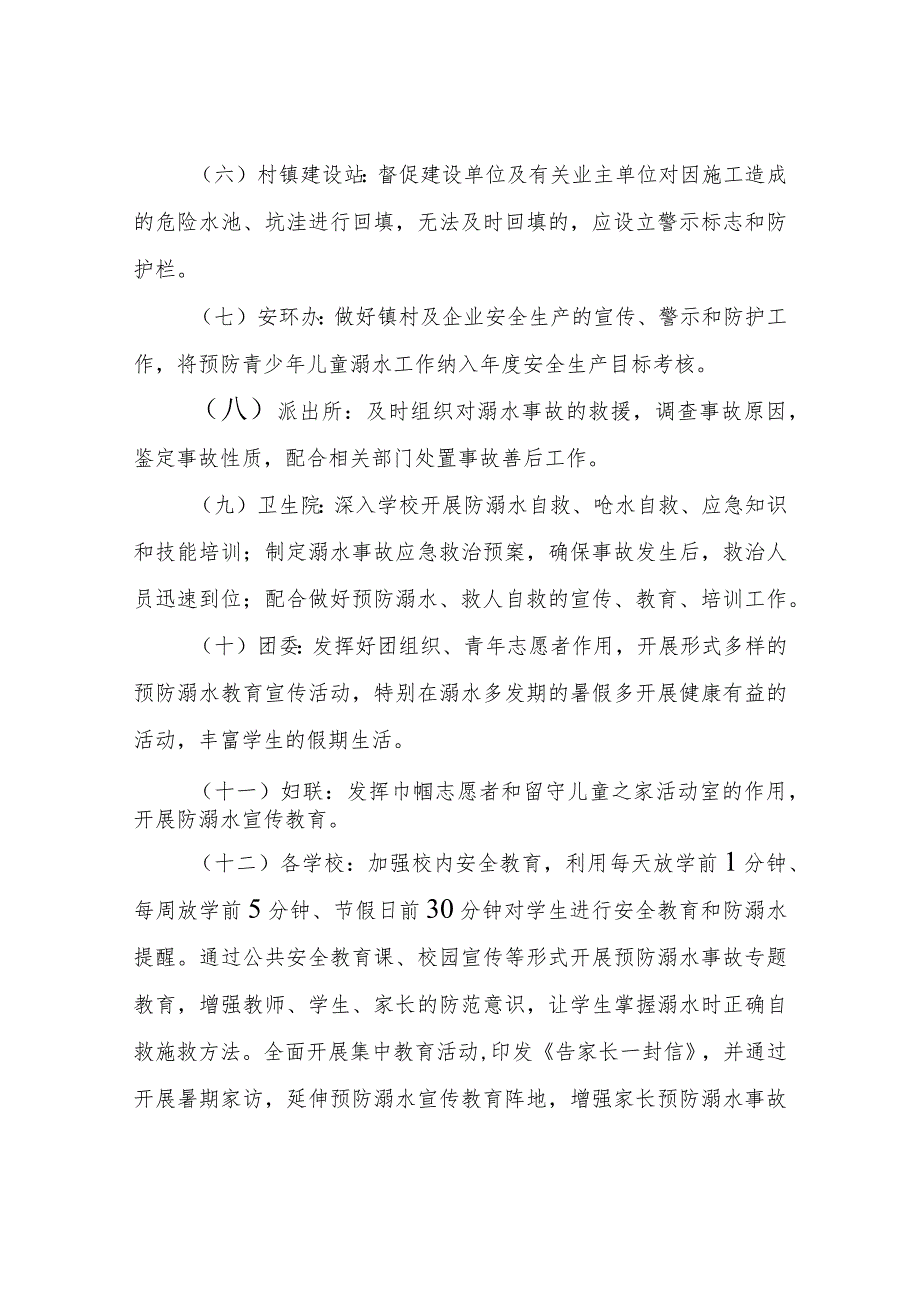 （六）村镇建设站：督促建设单位及有关业主单位对因施工造成
的危险水池、坑洼进行回填，无法及时回填的，应设立警示标志和防
护栏。
（七）安环办：做好镇村及企业安全生产的宣传、警示和防护工
作，将预防青少年儿童溺水工作纳入年度安全生产目标考核。
（八）派出所：及时组织对溺水事故的救援，调查事故原因，
鉴定事故性质，配合相关部门处置事故善后工作。
（九）卫生院：深入学校开展防溺水自救、呛水自救、应急知识
和技能培训；制定溺水事故应急救治预案，确保事故发生后，救治人
员迅速到位；配合做好预防溺水、救人自救的宣传、教育、培训工作。
（十）团委：发挥好团组织、青年志愿者作用，开展形式多样的
预防溺水教育宣传活动，特别在溺水多发期的暑假多开展健康有益的
活动，丰富学生的假期生活。
（十一）妇联：发挥巾帼志愿者和留守儿童之家活动室的作用，
开展防溺水宣传教育。
（十二）各学校：加强校内安全教育，利用每天放学前1分钟、
每周放学前5分钟、节假日前30分钟对学生进行安全教育和防溺水
提醒。通过公共安全教育课、校园宣传等形式开展预防溺水事故专题
教育，增强教师、学生、家长的防范意识，让学生掌握溺水时正确自
救施救方法。全面开展集中教育活动,印发《告家长一封信》，并通过
开展暑期家访，延伸预防溺水宣传教育阵地，增强家长预防溺水事故